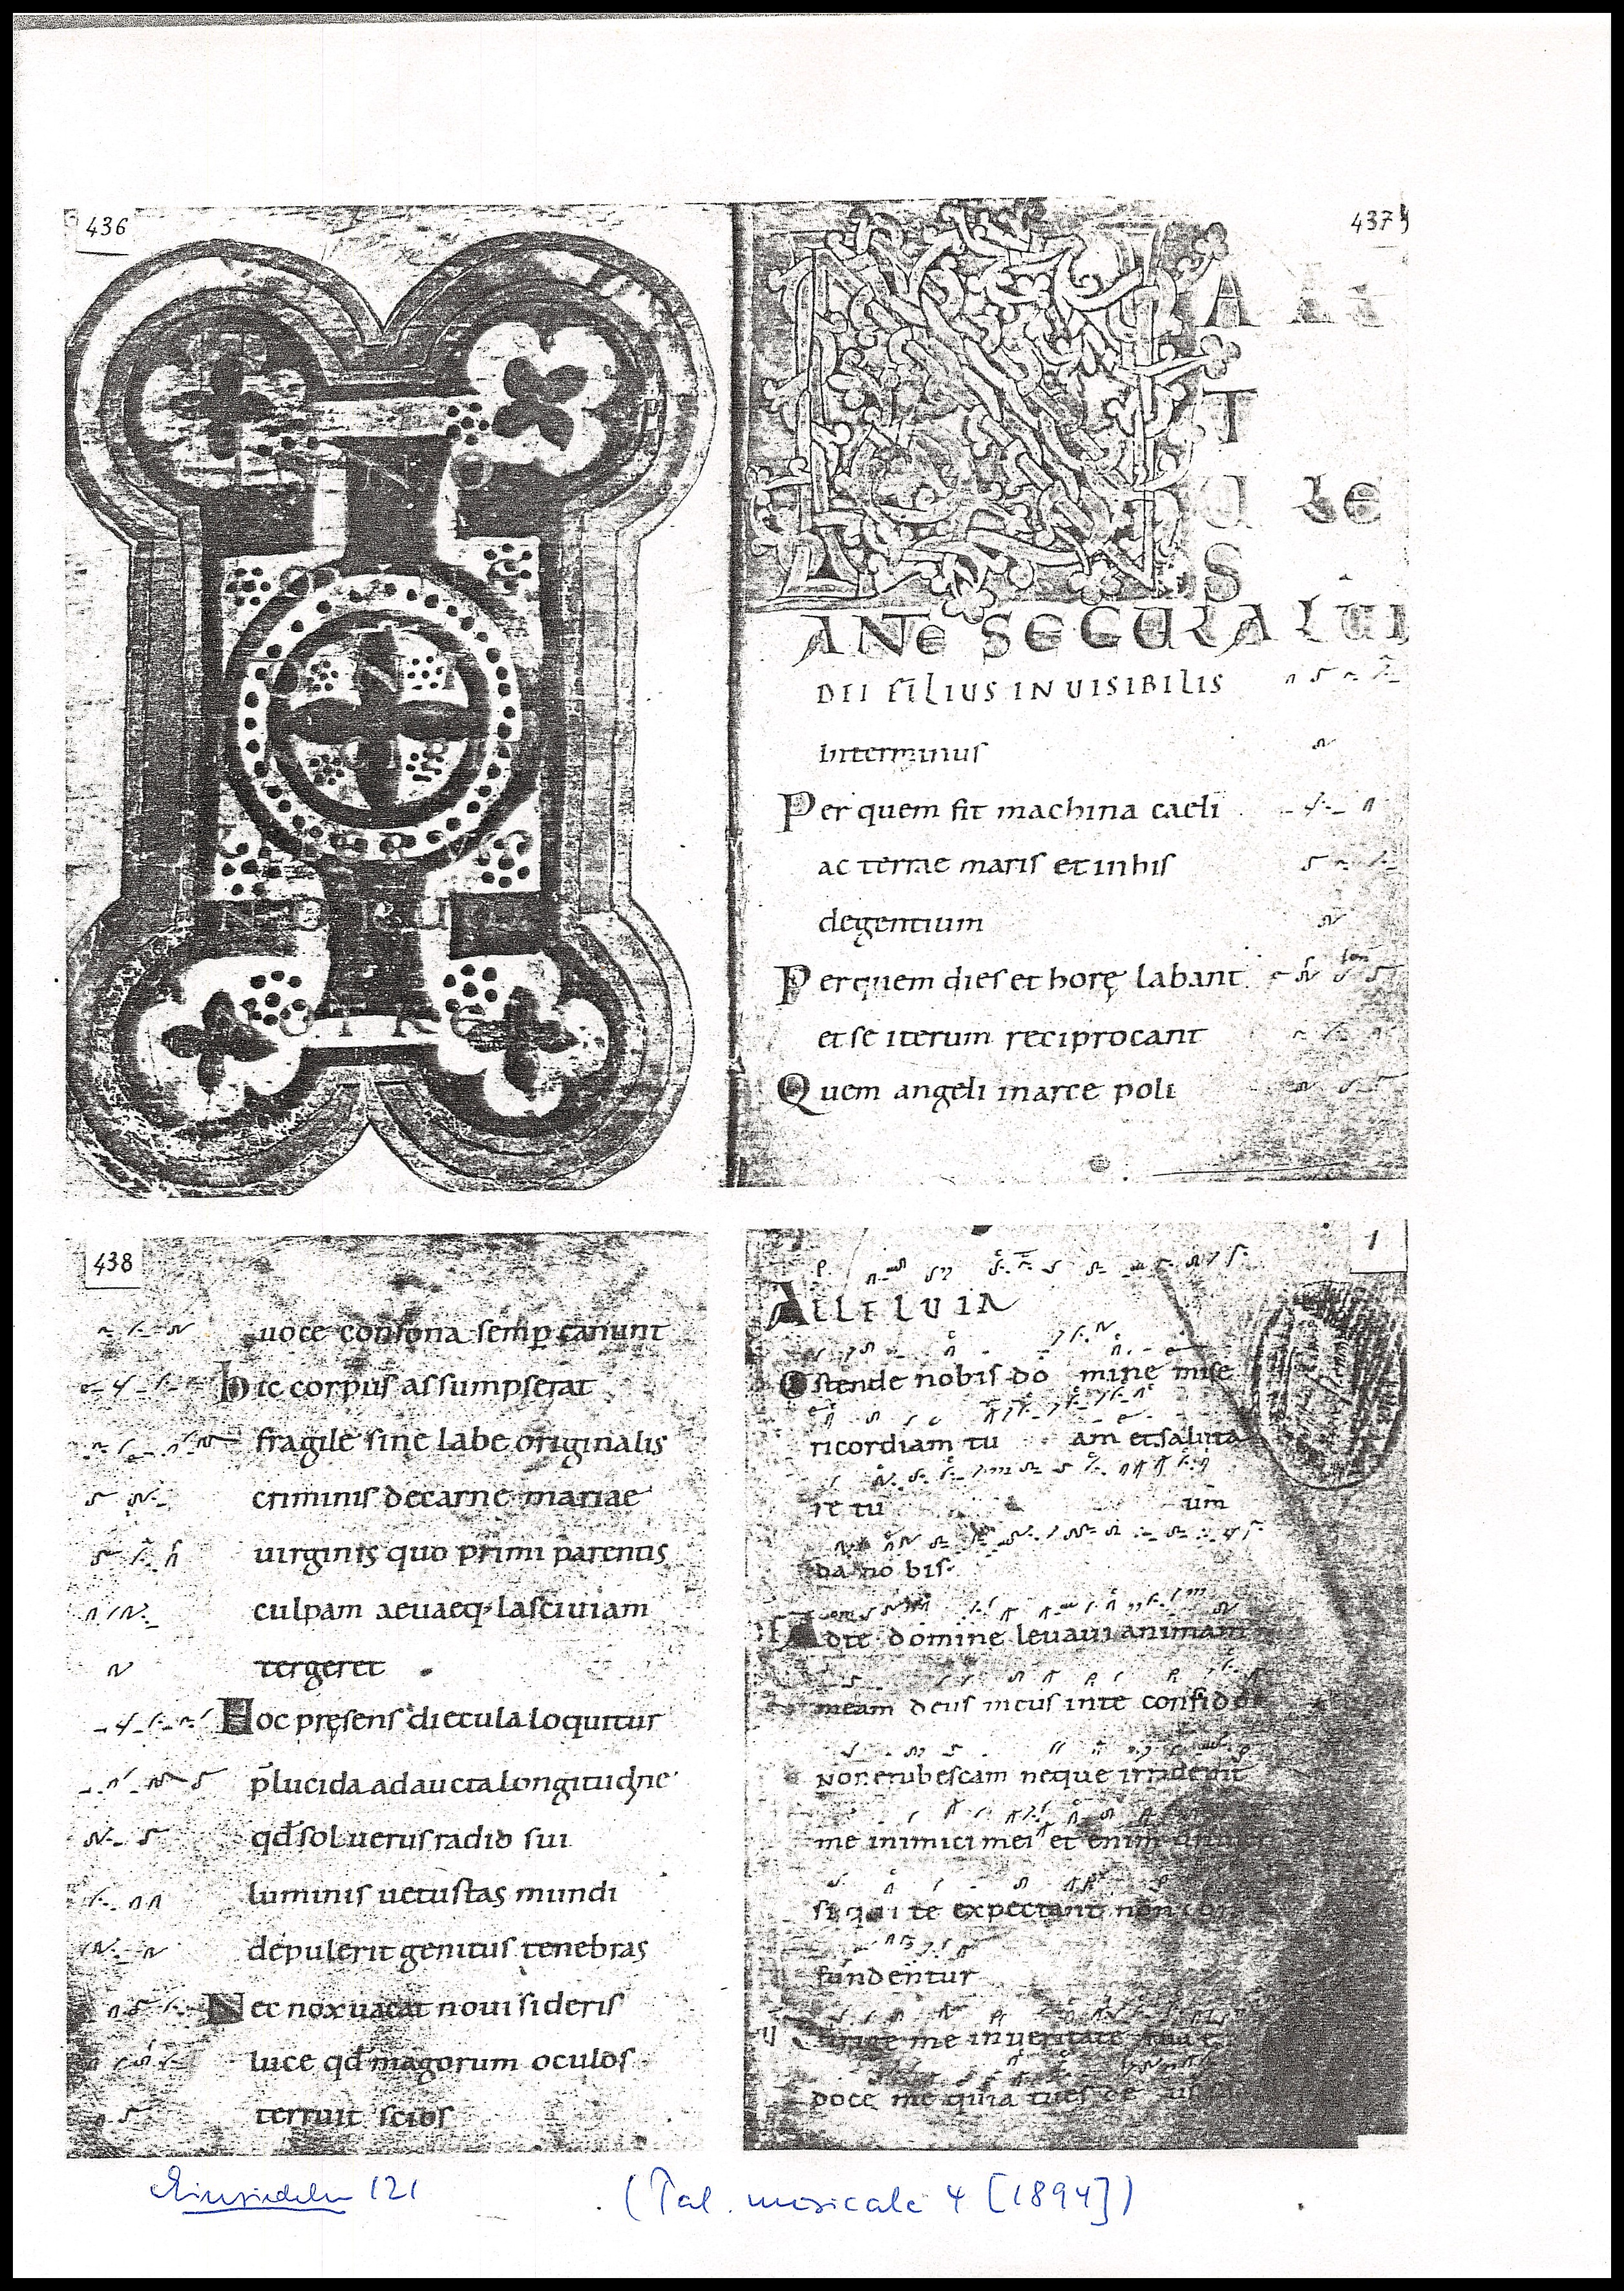 436
437
ANE SECULA
DEI FILIUS INUISIBILIS
interminus
Per quem fit machina caeli
ac terrae maris et in his
degentium
Per quem dies et horę labant
et se iterum reciprocant
Quem angeli in arce poli
438
uoce consona semp canunt
hic corpus assumpserat
fragile sine labe originalis
criminis decarne mariae
uirginis quo primi parentis
culpam aeuaeq; lasciuiam
tergeret
Hoc pręsens diecula loquitur
p̄lucida adaucta longitudine
qđ sol uerus radio sui
luminis uetustas mundi
depulerit genitus tenebras
Nec nox uacat noui sideris
luce qđ magorum oculos
terruit scios
1
ALLELUIA
Ostende nobis do mine mise
ricordiam tu am et saluta
re tu um
da no bis.
Ad te domine leuaui animam
meam deus meus inte confido
Non erubescam neque irrideant
me inimici mei et enim
qui te expectant non
fundentur
me in ueritate
doce me quia tu es
Einsiedeln 121
(Pal. musicale 4 [1894])